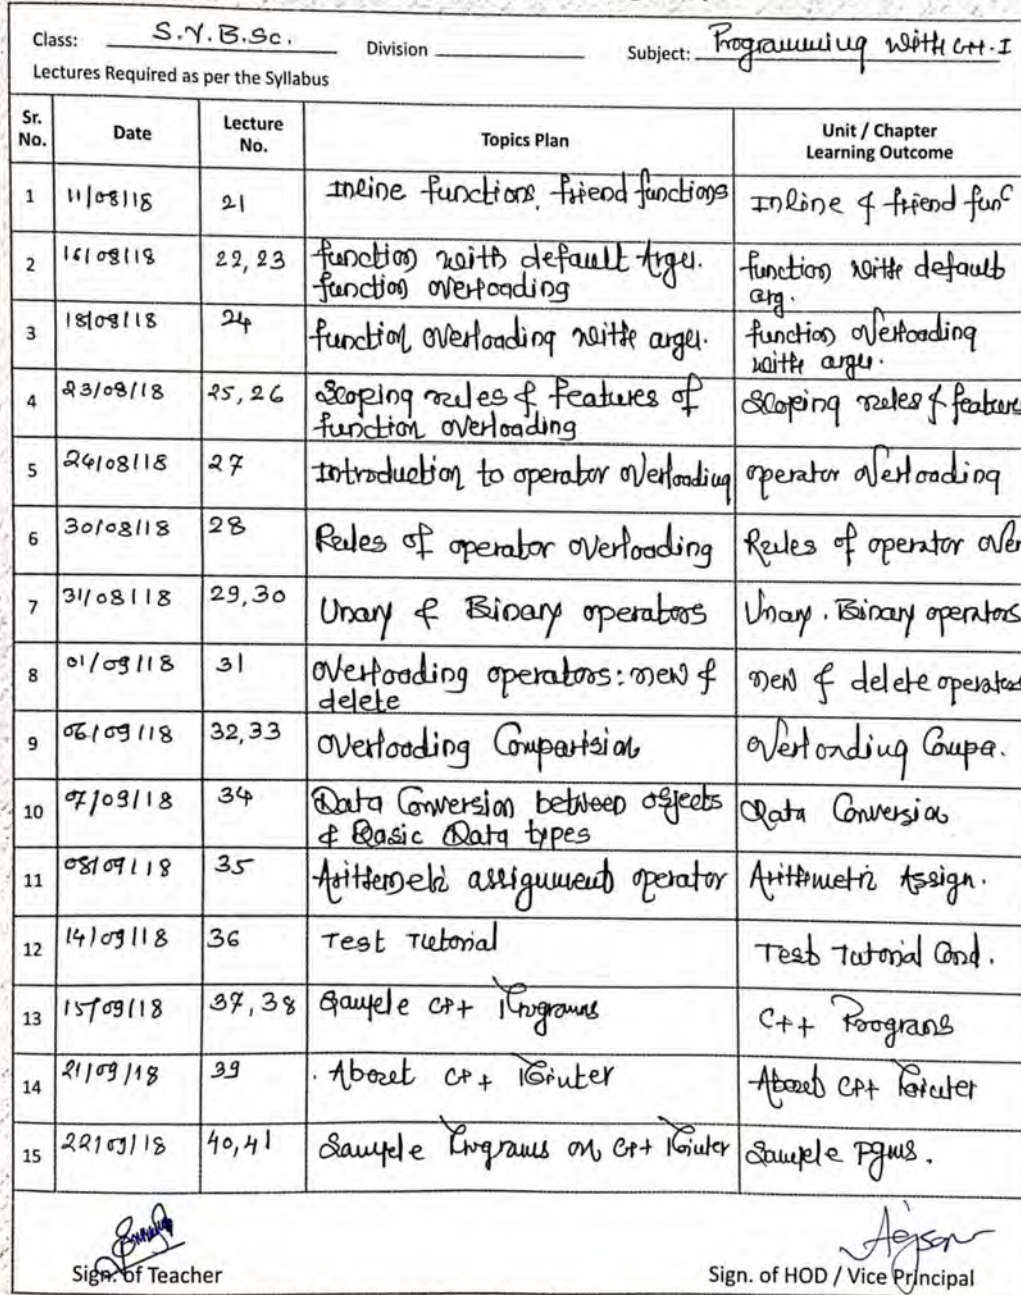 Class: S.Y.B.Sc. Division Subject: Programming with C++-I
Lectures Required as per the Syllabus
Sr. No. Date Lecture No. Topics Plan Unit / Chapter Learning Outcome
1 11/08/18 21 Inline functions, friend functions Inline & friend func
2 16/08/18 22,23 function with default Args. function with default
function overloading arg.
3 18/08/18 24 function overloading with args. function overloading
with args.
4 23/08/18 25,26 Scoping rules & features of Scoping rules & features
function overloading
5 24/08/18 27 Introduction to operator overloading operator overloading
6 30/08/18 28 Rules of operator overloading Rules of operator over
7 31/08/18 29,30 Unary & Binary operators Unary. Binary operators
8 01/09/18 31 overloading operators: new & new & delete operators
delete
9 06/09/18 32,33 overloading Comparision overloading Compa.
10 07/09/18 34 Data Conversion between objects Data Conversion
& Basic Data types
11 08/09/18 35 Arithemetic assignment operator Arithmetic Assign.
12 14/09/18 36 Test Tutorial Test Tutorial Cond.
13 15/09/18 37,38 Sample C++ Programs C++ Programs
14 21/09/18 39 About C++ Pointer About C++ Pointer
15 22/09/18 40,41 Sample Programs on C++ Pointer Sample Pgms.
Sign. of Teacher Sign. of HOD / Vice Principal